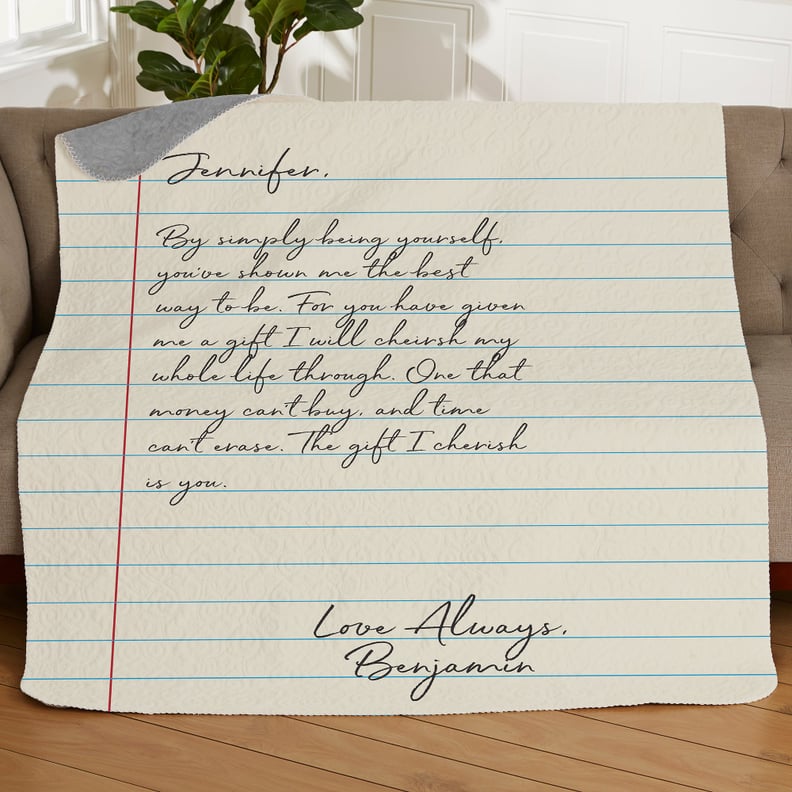 Jennifer,
By simply being yourself,
you've shown me the best
way to be. For you have given
me a gift I will cheirsh my
whole life through. One that
money can't buy, and time
can't erase. The gift I cherish
is you.
Love Always,
Benjamin